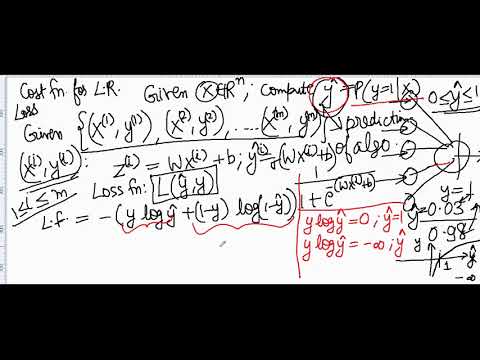 Cost fn. for L.R. Given X∈Rⁿ; compute ŷ = P(y=1|x)
Loss
0≤ŷ≤1
Given {(X⁽¹⁾, y⁽¹⁾), (X⁽²⁾, y⁽²⁾), .... (X⁽ᵐ⁾, yᵐ)} prediction of algo.
(X⁽ⁱ⁾, y⁽ⁱ⁾): z⁽ⁱ⁾ = WX⁽ⁱ⁾ + b; ŷ⁽ⁱ⁾ = σ(WX⁽ⁱ⁾+b)
1≤i≤m
Loss fn: L(ŷ, y)
1
1 + e^-(WX⁽ⁱ⁾+b)
L.f = -(y log ŷ + (1-y) log(1-ŷ))
y log ŷ = 0 ; ŷ=1
y log ŷ = -∞ ; ŷ
y=1
ŷ=0.03
0.98
y
1
ŷ
-∞